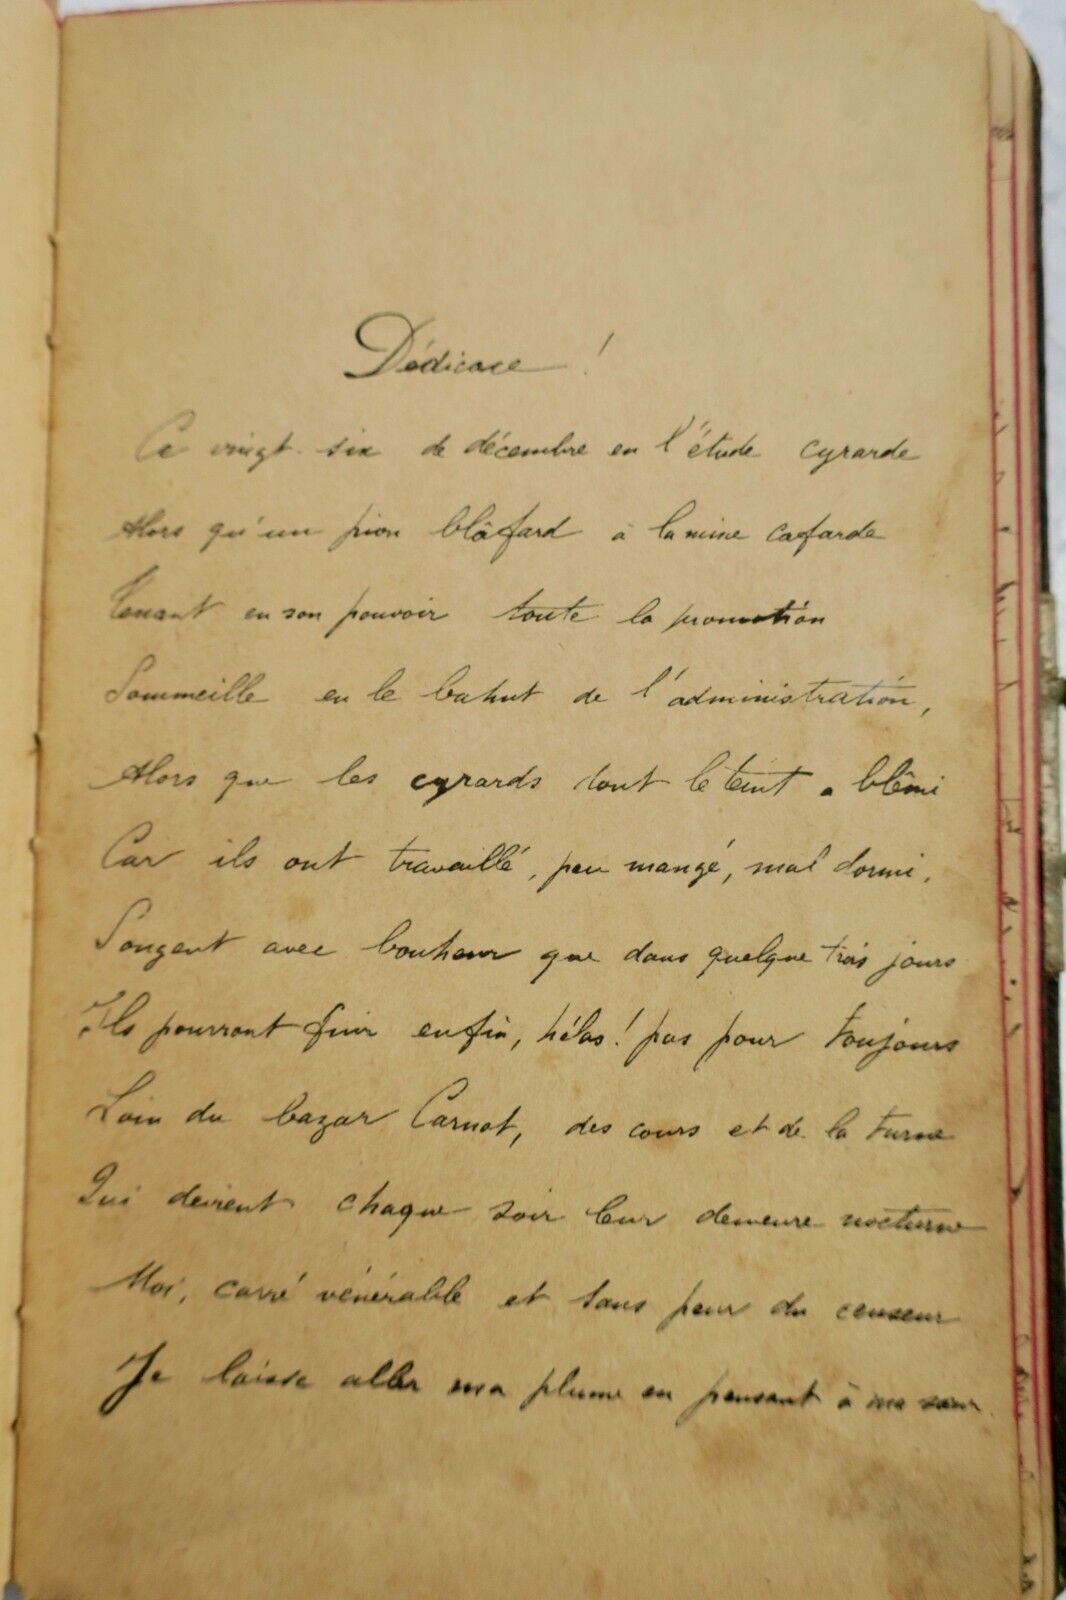 Dédicace !
Ce vingt-six de décembre en l'étude cyrarde
Alors qu'un pion blâfard à la mine cafarde
Tenant en son pouvoir toute la promotion
Sommeille en le bahut de l'administration,
Alors que les cyrards dont le teint a blêmi
Car ils ont travaillé, peu mangé, mal dormi,
Songent avec bonheur que dans quelque trois jours
Ils pourront fuir enfin, hélas ! pas pour toujours
Loin du bazar Carnot, des cours et de la turne
Qui devient chaque soir leur demeure nocturne
Moi, carré vénérable et sans peur du censeur
Je laisse aller ma plume en pensant à ma sœur.